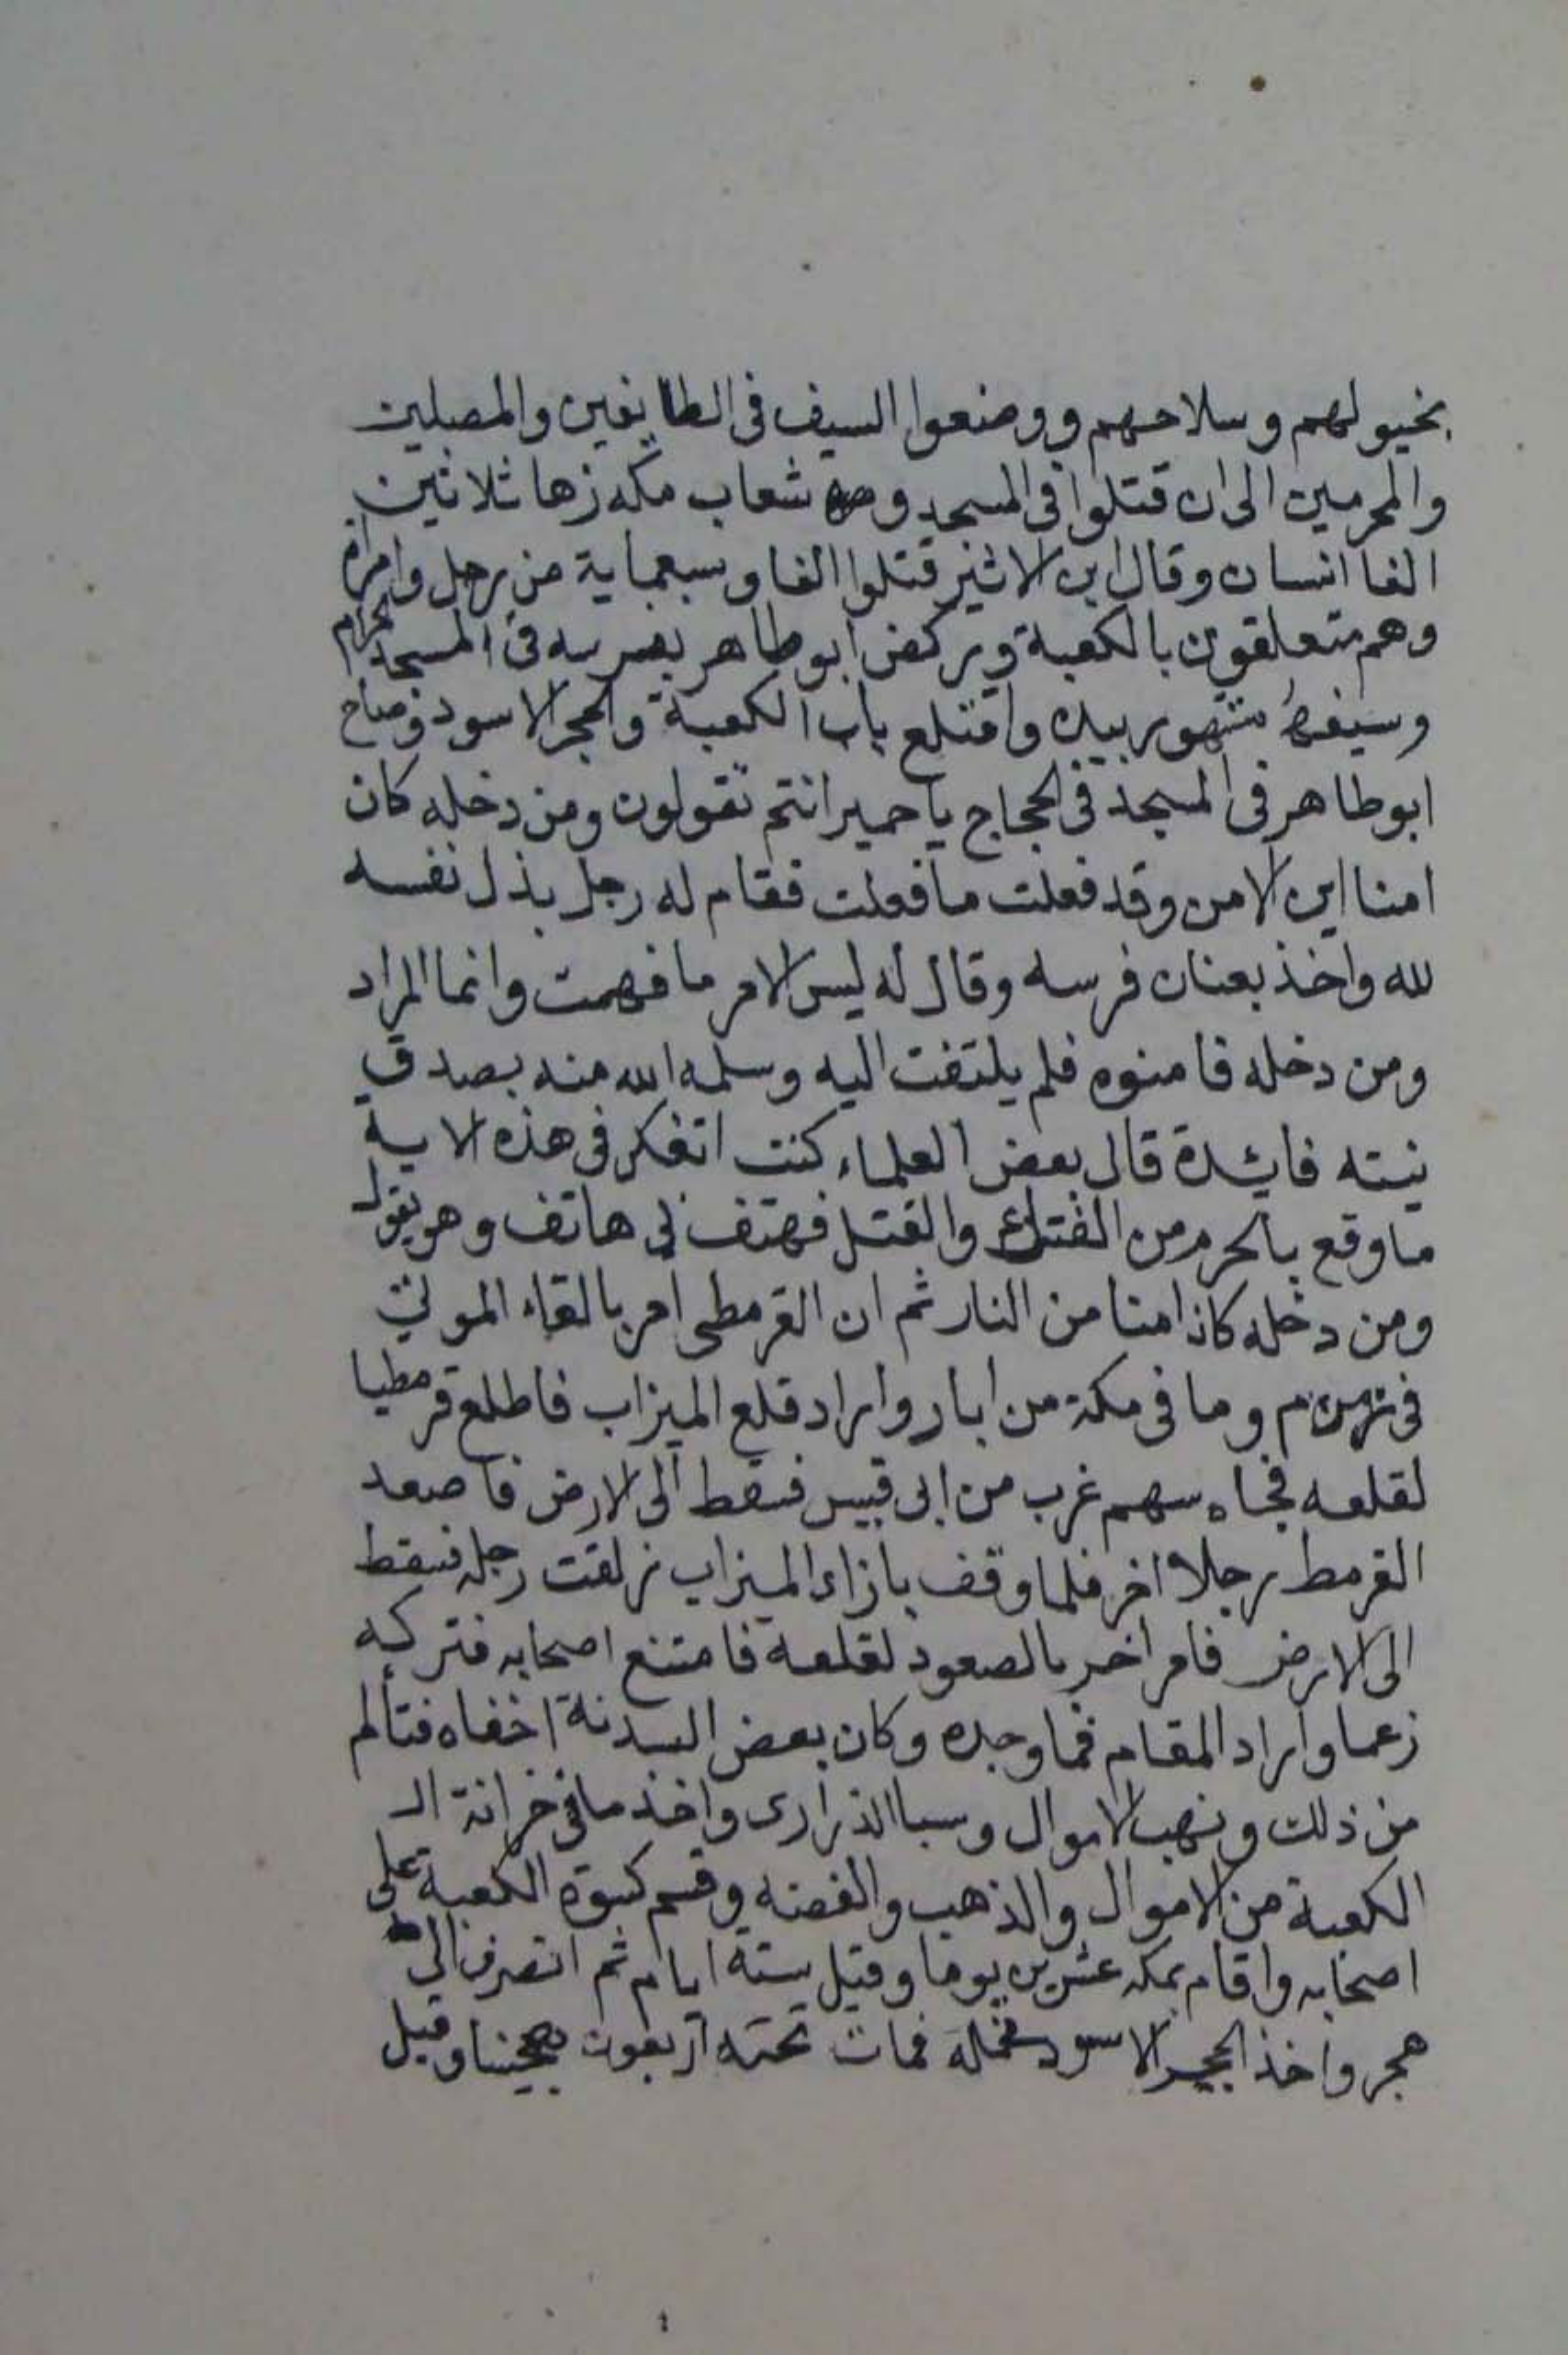 بخيولهم وسلاحهم ووضعوا السيف فى الطايفين والمصلين
والمحرمين الى ان قتلوا فى المسجد و شعاب مكه زها ثلاثين
الفا انسان وقال ابن الاثير قتلوا الفا وسبعماية من رجل وامراة
وهم متعلقون بالكعبة وركض ابو طاهر بفرسه فى المسجد الحرام
وسيفه مشهور بيده واقتلع باب الكعبة والحجر الاسود وصاح
ابو طاهر فى المسجد فى الحجاج يا حمير انتم تقولون ومن دخله كان
امنا اين الامن وقد فعلت ما فعلت فقام له رجل بذل نفسه
لله واخذ بعنان فرسه وقال له ليس الامر ما فهمت وانما المراد
ومن دخله فامنوه فلم يلتفت اليه وسلمه الله منه بصدق
نيته فايدة قال بعض العلماء كنت اتفكر فى هذه الاية
ما وقع بالحرم من الفتك والقتل فهتف لي هاتف وهو يقول
ومن دخله كان امنا من النار ثم ان القرمطى امر بالقاء الموتى
فى زمزم وما فى مكة من ابار واراد قلع الميزاب فاطلع قرمطيا
لقلعه فجاه سهم غرب من ابى قبيس فسقط الى الارض فاصعد
القرمط رجلا اخر فلما وقف بازاء الميزاب زلقت رجله فسقط
الى الارض فامر اخر بالصعود لقلعه فامتنع اصحابه فتركه
زعما واراد المقام فما وجده وكان بعض السدنة اخفاه فتألم
من ذلك ونهب الاموال وسبا الذرارى واخذ ما فى خزانة ال
الكعبة من الاموال والذهب والفضه وقسم كسوة الكعبة على
اصحابه واقام بمكه عشرين يوما وقيل ستة ايام ثم انصرف الى
هجر واخذ الحجر الاسود فحمله فمات تحته اربعون هجينا وقيل